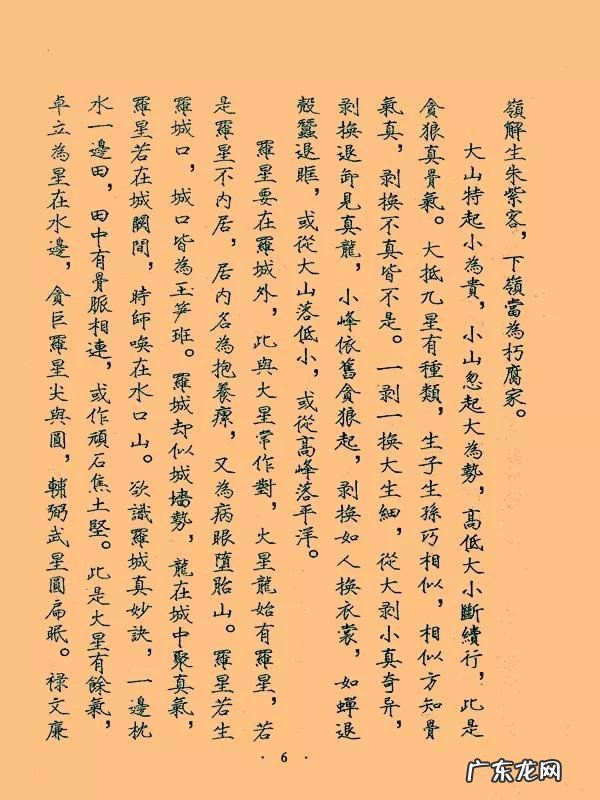 嶺解生朱紫客，下嶺當為朽腐家。
大山特起小為貴，小山忽起大為勢，高低大小斷續行，此是
貪狼真骨氣。大抵九星有種類，生子生孫巧相似，相似方知骨
氣真，剥換不真皆不是。一剥一換大生細，從大剥小真奇异，
剥換退卸見真龍，小峰依舊貪狼起，剥換如人換衣裳，如蟬退
殼蠶退眶，或從大山落低小，或從高峰落平洋。
羅星要在羅城外，此與火星常作對，火星龍始有羅星，若
是羅星不内居，居内名為抱養瘝，又為病眼墮胎山。羅星若生
羅城口，城口皆為玉笋班。羅城却似城墻勢，龍在城中聚真氣，
羅星若在城闕間，時師唤在水口山。欲識羅城真妙訣，一邊枕
水一邊田，田中有骨脈相連，或作頑石焦土堅。此是火星有餘氣，
卓立為星在水邊，貪巨羅星尖與圓，輔弼武星圓扁眠。禄文廉
·6·
广东龙网